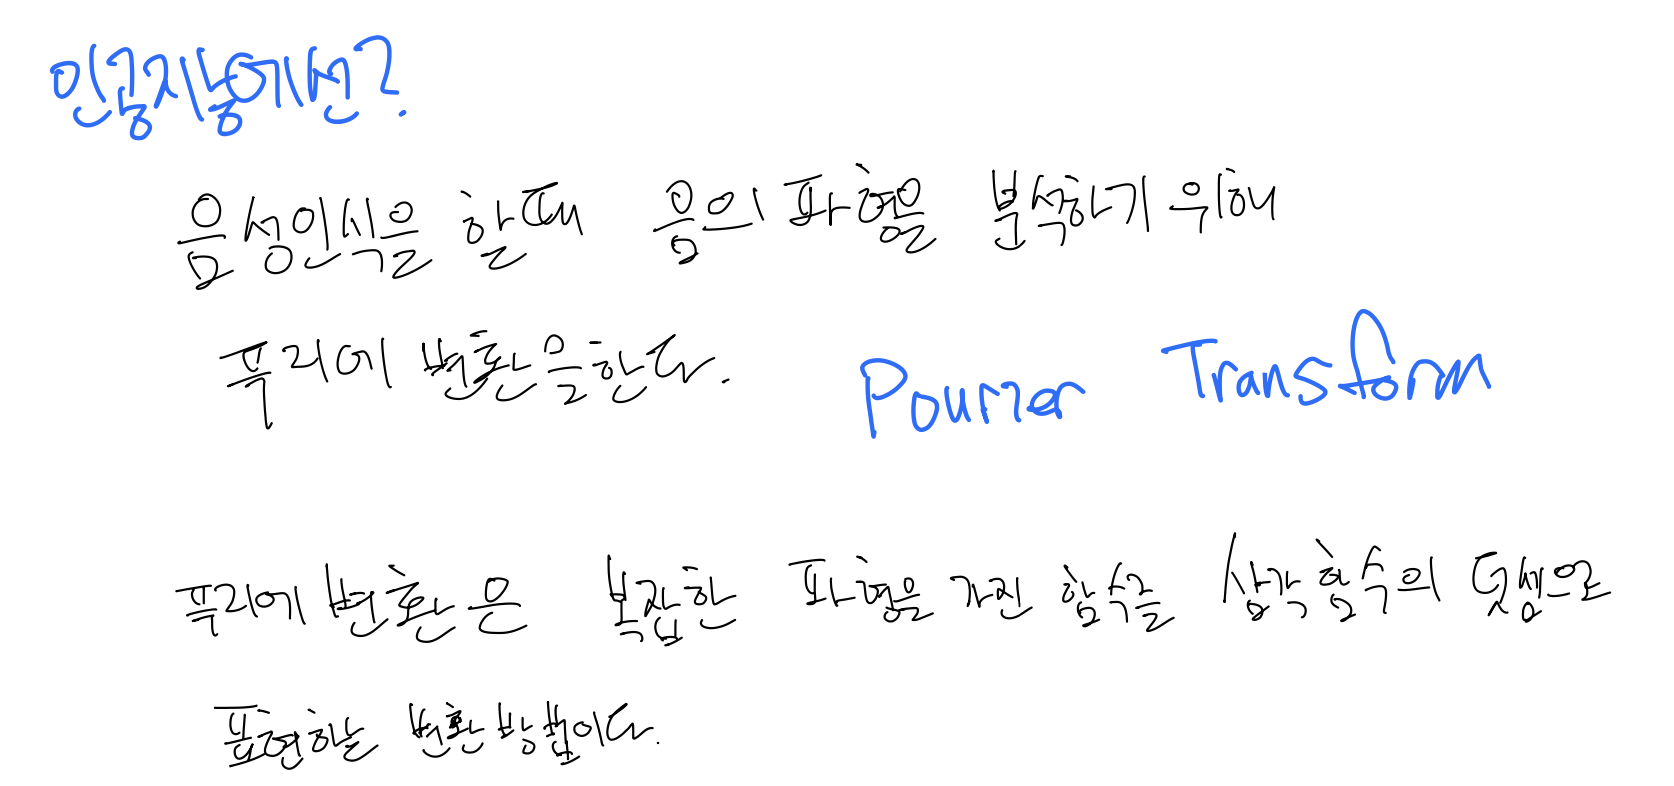 인공지능에선?
음성인식을 할때 음의 파형을 분석하기 위해
푸리에 변환을한다. Pourier Transform
푸리에 변환은 복잡한 파형을 가진 함수를 삼각함수의 덧셈으로
표현하는 변환방법이다.